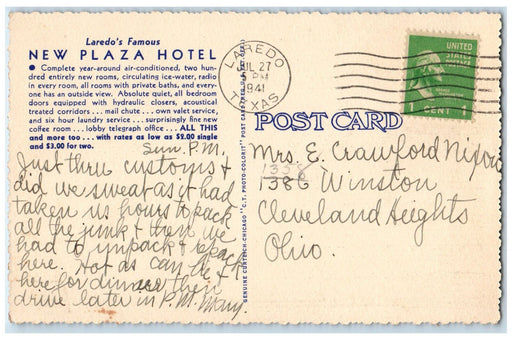 Laredo's Famous
NEW PLAZA HOTEL
● Complete year-around air-conditioned, two hun-
dred entirely new rooms, circulating ice-water, radio
in every room, all rooms with private baths, and every-
one has an outside view. Absolute quiet, all bedroom
doors equipped with hydraulic closers, acoustical
treated corridors ... mail chute ... own valet service,
and six hour laundry service ... surprisingly fine new
coffee room ... lobby telegraph office ... ALL THIS
and more too ... with rates as low as $2.00 single
and $3.00 for two.
Sun. P.M.
Just thru customs &
did we sweat as it had
taken us hours to pack
all the junk & then we
had to unpack & repack
here. Hot as can be &
here for dinner then
drive later in P.M. Mary.
GENUINE CURTEICH-CHICAGO "C.T. PHOTO-COLORIT" POST CARD
LAREDO
JUL 27
5 PM
1941
TEXAS
UNITED
STATES
POSTAGE
1 CENT 1
POST CARD
Mrs. E. Crawford Nixon
1386 Winston
Cleveland Heights
Ohio.